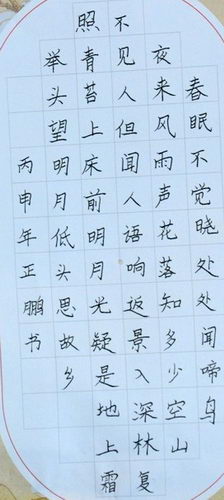 春眠不觉晓处处闻啼鸟
夜来风雨声花落知多少空山
不见人但闻人语响返景入深林复
照青苔上床前明月光疑是地上霜
举头望明月低头思故乡
丙申年正鹏书